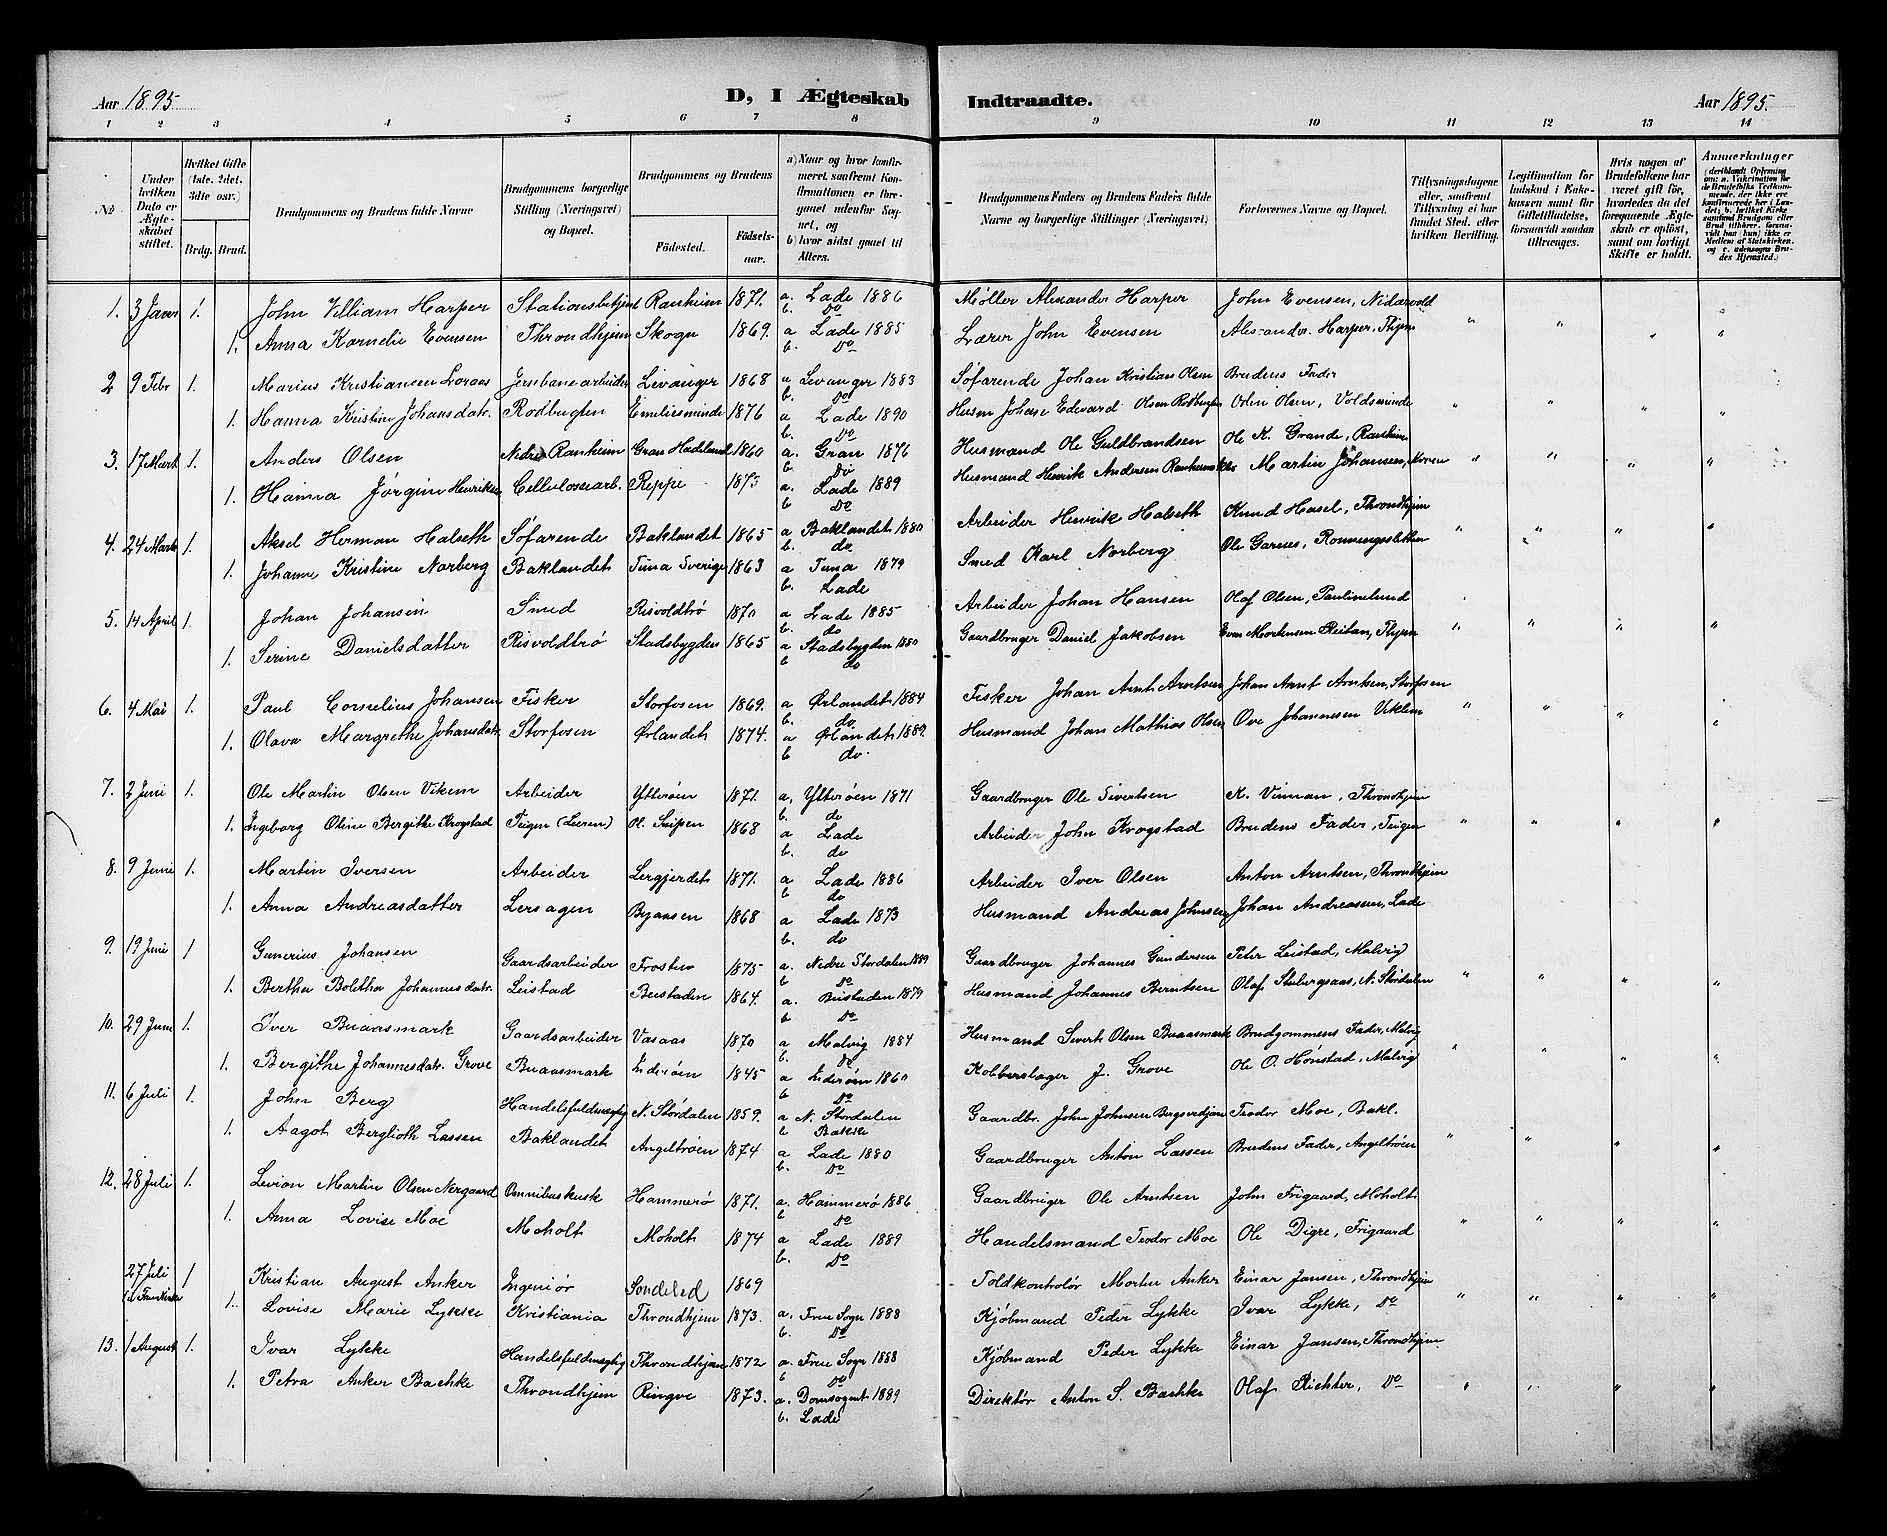 Aar 1895. D, I Ægteskab Indtraadte. Aar 1895.
1 2 3 4 5 6 7 8 9 10 11 12 13 14
№ Under hvilken Dato er Ægteskabet stiftet. Hvilket Gifte (1ste, 2det, 3die osv.) Brdg. Brud. Brudgommens og Brudens fulde Navne Brudgommens borgerlige Stilling (Næringsvei) og Bopæl. Brudgommens og Brudens Fødested. Fødselsaar. a) Naar og hvor konfirmeret, saafremt Konfirmationen er foregaaet udenfor Sognet, og b) hvor sidst gaaet til Alters. Brudgommens Faders og Brudens Faders fulde Navne og borgerlige Stillinger (Næringsvei) Forlovernes Navne og Bopæl. Tillysningsdagene eller, saafremt Tillysning ei har fundet Sted, efter hvilken Bevilling. Legitimation for Indskud i Enkekassen samt for Giftetilladelse, forsaavidt saadan tiltrænges. Hvis nogen af Brudefolkene har været gift før, hvorledes da det foregaaende Ægteskab er opløst, samt om lovligt Skifte er holdt. Anmærkninger
1. 3 Janr 1. John Villiam Harper Stationsbetjent Ranheim 1871. a. Lade 1886 b. Do Møller Alexander Harper John Evensen, Nidarvold
1. Anna Kornelie Evensen Throndhjem Skogn 1869. a Lade 1885 b. Do Lærer John Evensen Alexander Harper, Thjem
2 9 Febr 1. Marius Kristiansen Loraas Jernbanearbeider Levanger 1868 a Levanger 1883 b. Do Søfarende Johan Kristian Olsen Brudens Fader
1. Hanna Kristine Johansdatr. Rodbugten Emiliesminde 1876 a Lade 1890 b. Do Husm Johan Edvard Olsen Rodbugten Odin Olsen, Voldsminde
3. 17 Marts 1. Anders Olsen Nedre Ranheim Gran Hadeland 1860 a. Gran 1876 b Do Husmand Ole Guldbrandsen Ole K. Grande, Ranheim
1. Hanna Jørgine Henriksen Cellulosearb. Reppe 1873 a. Lade 1889 b Do Husmand Henrik Andersen Martin Johansen,
4. 24 Marts 1. Aksel Herman Halseth Søfarende Baklandet 1865 a Baklandet 1880 b. do Arbeider Henrik Halseth Knud Hasel, Throndhjem
1. Johanne Kristine Norberg Baklandet Tuna Sverige 1863 a Tuna 1879 b. Lade Smed Karl Norberg Ole Garnes, Rønningsletten
5. 14 April 1. Johan Johansen Smed Risvoldtrø 1870 a Lade 1885 b. do Arbeider Johan Hansen Olaf Olsen, Paulinelund
1. Serine Danielsdatter Risvoldtrø Stadsbygden 1865 a Stadsbygden 1880 b do Gaardbruger Daniel Jakobsen Even Mortensen Reitan, Thjem
6. 4 Mai 1. Paul Cornelius Johansen Fisker Storfosen 1869. a Ørlandet 1884 b. do Fisker Johan Arnt Arntsen Johan Arnt Arntsen, Storfosen
1. Olava Margrethe Johansdatr. Storfosen Ørlandet 1874. a Ørlandet 1889. b do. Husmand Johan Mathias Olsen Ove Johannesen Viklem
7. 2 Juni 1. Ole Martin Olsen Vikem Arbeider Ytterøen 1871. a. Ytterøen 1871 b. do Gaardbruger Ole Sivertsen K. Viman, Throndhjem
1. Ingeborg Oline Bergitte Krogstad Teigen (Leeren) Ol. Seipen 1868 a Lade b. do Arbeider John Krogstad Brudens Fader, Teigen
8. 9 Juni 1. Martin Iversen Arbeider Lergjerdet 1871. a Lade 1886 b do Arbeider Iver Olsen Anton Arntsen, Throndhjem
1. Anna Andreasdatter Lersagen Byaasen 1868 a Lade 1873 b. do Husmand Andreas Johnsen Johan Andreasen, Lade
9. 19 Juni 1 Gunerius Johansen Gaardsarbeider Frosten 1875 a. Nedre Stordalen 1889 b Do Gaardbruger Johannes Gundersen Peter Leistad, Malvig
1. Bertha Bolitha Johannesdatr. Leistad Beistaden 1864. a. Beistaden 1879 b Do Husmand Johannes Berntsen Olaf Stubergsaas, N. Stordalen
10. 29 Juni 1. Iver Buaasmark Gaardsarbeider Vasaas 1870 a Malvig 1884 b. Do Husmand Sivert Olsen Buaasmark Brudgommens Fader, Malvig
1. Bergithe Johannesdatr. Grove Buaasmark Inderøen 1845 a Inderøen 1860 b Do Kobberslager J. Grove Ole O. Hønstad, Malvig
11. 6 Juli 1. John Berg Handelsfuldmægtig N. Stördalen 1859. a N. Stordalen b Bakke Gaardbr. John Johnsen Teodor Moe, Bakl.
1. Aagot Berglioth Lassen Baklandet Angeltrøen 1874 a Lade 1880 b. Do Gaardbruger Anton Lassen Brudens Fader, Angeltrøen
12. 28 Juli 1. Levion Martin Olsen Nergaard Omnibuskusk Hammerø 1871. a. Hammerø 1886 b Do Gaardbruger Ole Arntsen John Frigaard, Moholt
1. Anna Lovise Moe Moholt Moholt 1874 a Lade 1889 b. Do Handelsmand Teodor Moe Ole Digre, Frigaard
27 Juli i Frue Kirke 1 Kristian August Anker Ingeniør Sondeled 1869 Toldkontrolør Morten Anker Einar Jansen, Throndhjem
1. Lovise Marie Lykke Kristiania Throndhjem 1873. a. Frue Sogn 1888 b. Do Kjøbmand Peder Lykke Ivar Lykke, Do
13. 1 August 1. Ivar Lykke Handelsfuldmægtig Throndhjem 1872 a. Frue Sogn 1888 b Do Kjøbmand Peder Lykke Einar Jansen, Throndhjem
1. Petra Anker Bachke Throndhjem Ringve 1873. a. Domsognet 1889 b. Lade Direktør Anton S. Bachke Olaf Richter, Do